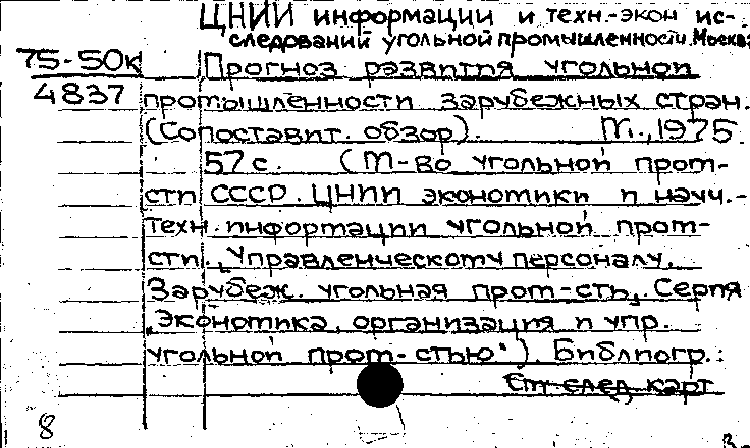 ЦНИИ информации и техн.-экон ис-
следований угольной промышленности. Москва
75-50к Прогноз развития угольной
4837 промышленности зарубежных стран.
(Сопоставит. обзор). М., 1975
57 с. (М-во угольной пром-
сти СССР. ЦНИИ экономики и науч.-
техн. информации угольной пром-
сти. Управленческому персоналу.
Зарубеж. угольная пром-сть. Серия
"Экономика, организация и упр.
угольной пром-стью"). Библиогр.:
См след. карт
8